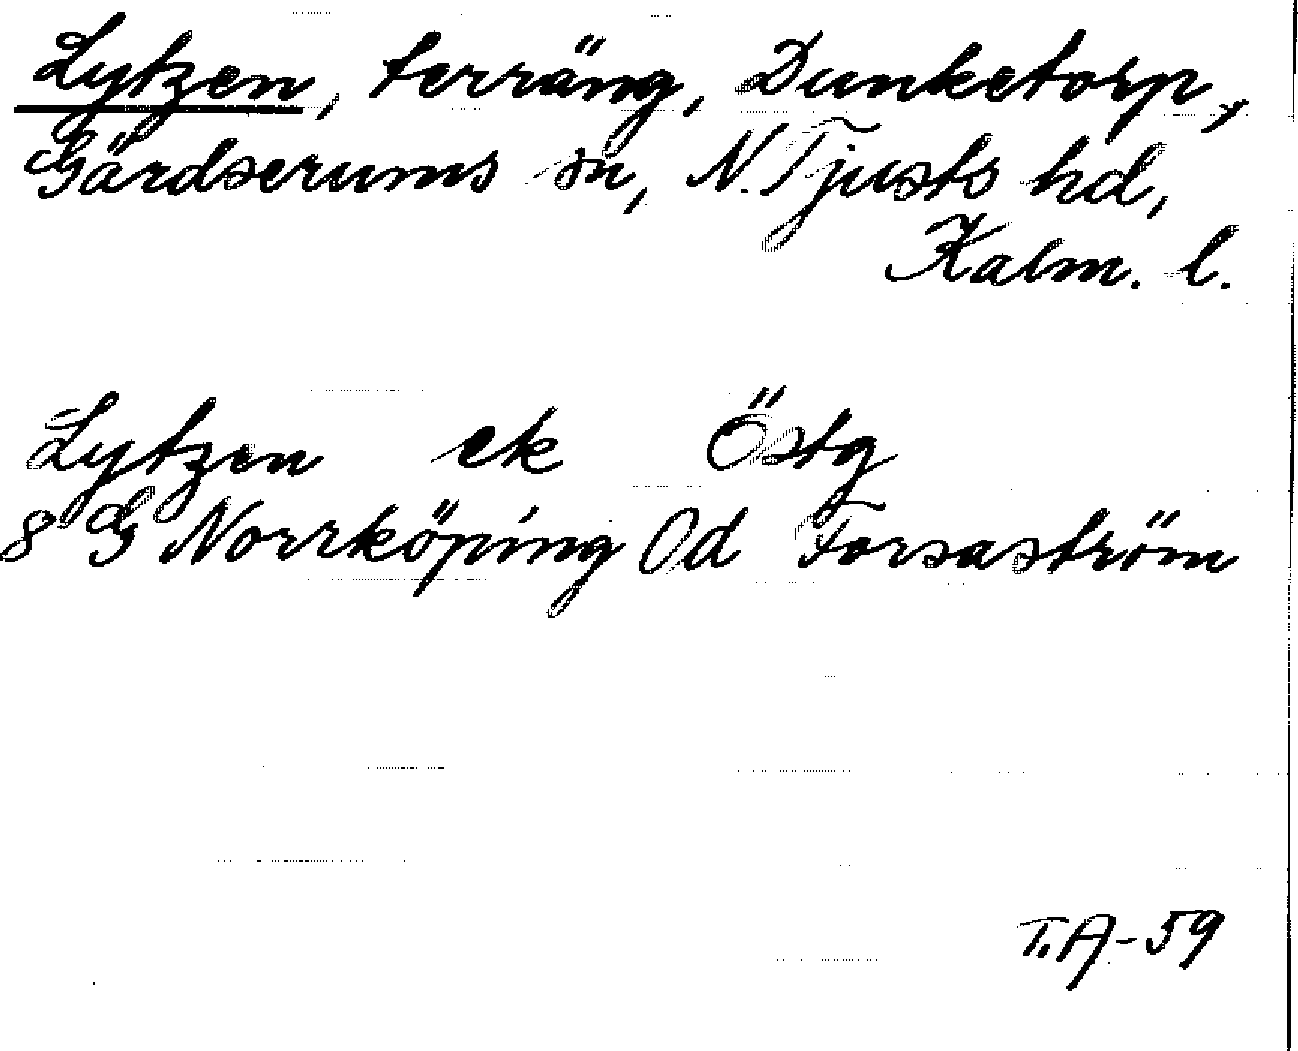 Lytzen, terräng, Dunketorp,
Gärdserums sn, N. Tjusts hd,
Kalm. l.
Lytzen ek Östg
8 G Norrköping Od Forsaström
T.A-59